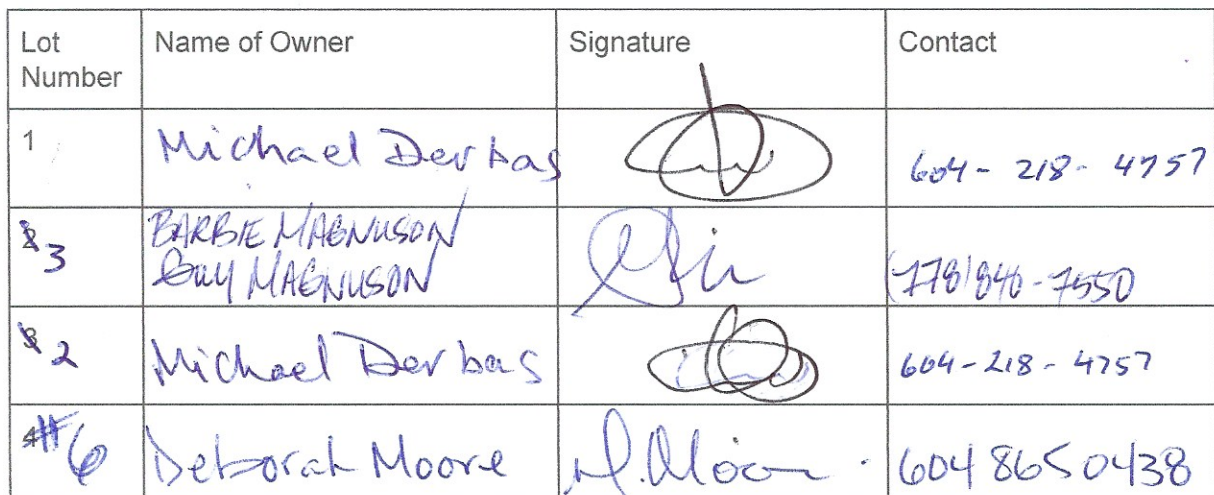 Lot Number Name of Owner Signature Contact
1 Michael Derbas 604-218-4757
3 BARBIE MAGNUSON
GUY MAGNUSON (778)840-7550
2 Michael Derbas 604-218-4757
#6 Deborah Moore D. Moore 604 865 0438